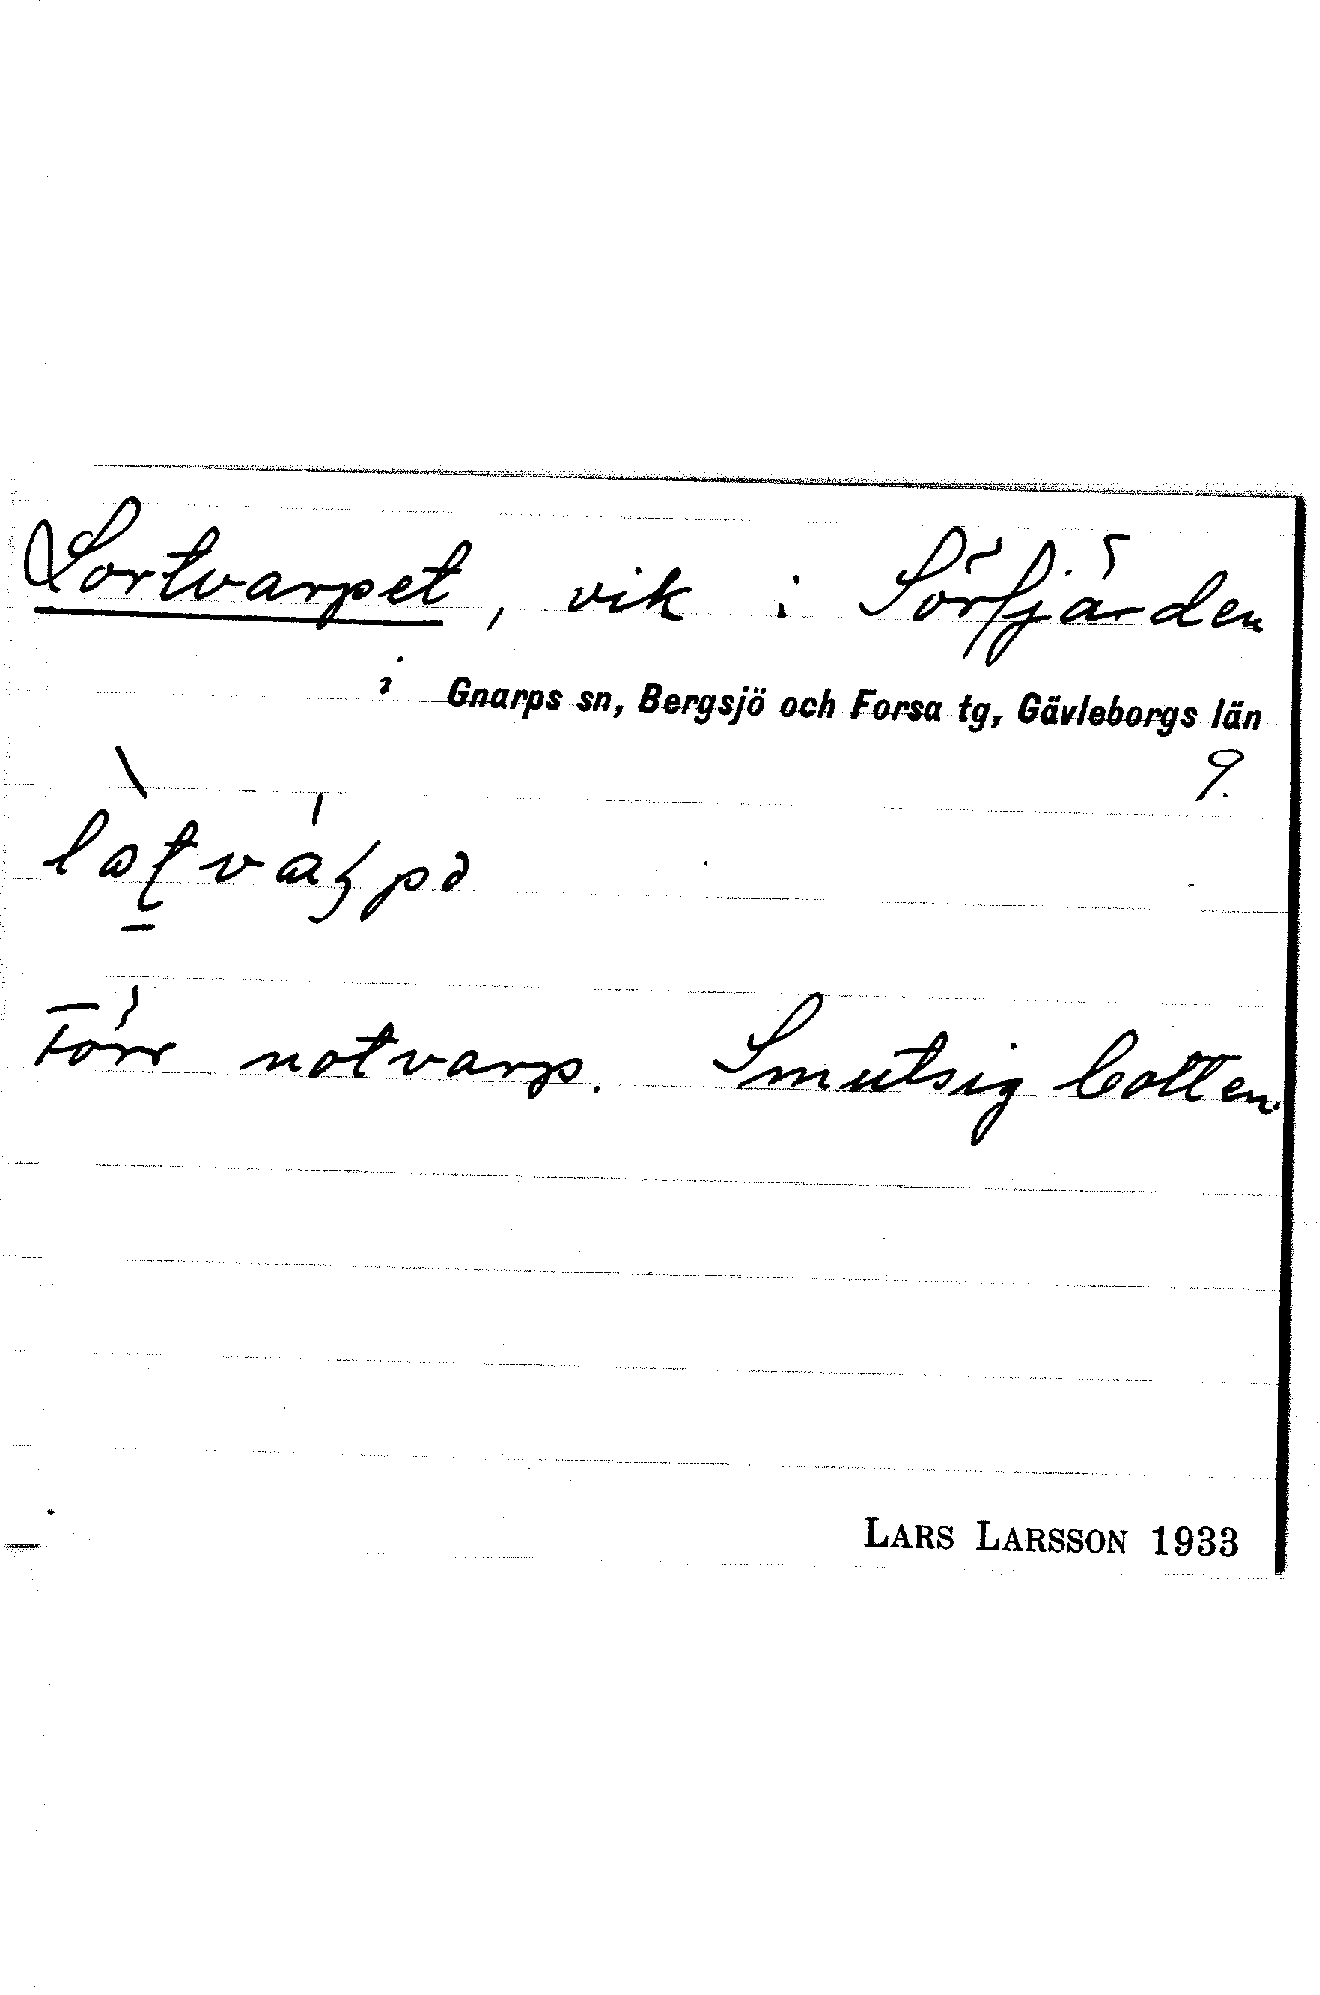 Lortvarpet, vik i Sörfjärden
i Gnarps sn, Bergsjö och Forsa tg, Gävleborgs län
9.
Förr notvarp. Smutsig botten.
LARS LARSSON 1933